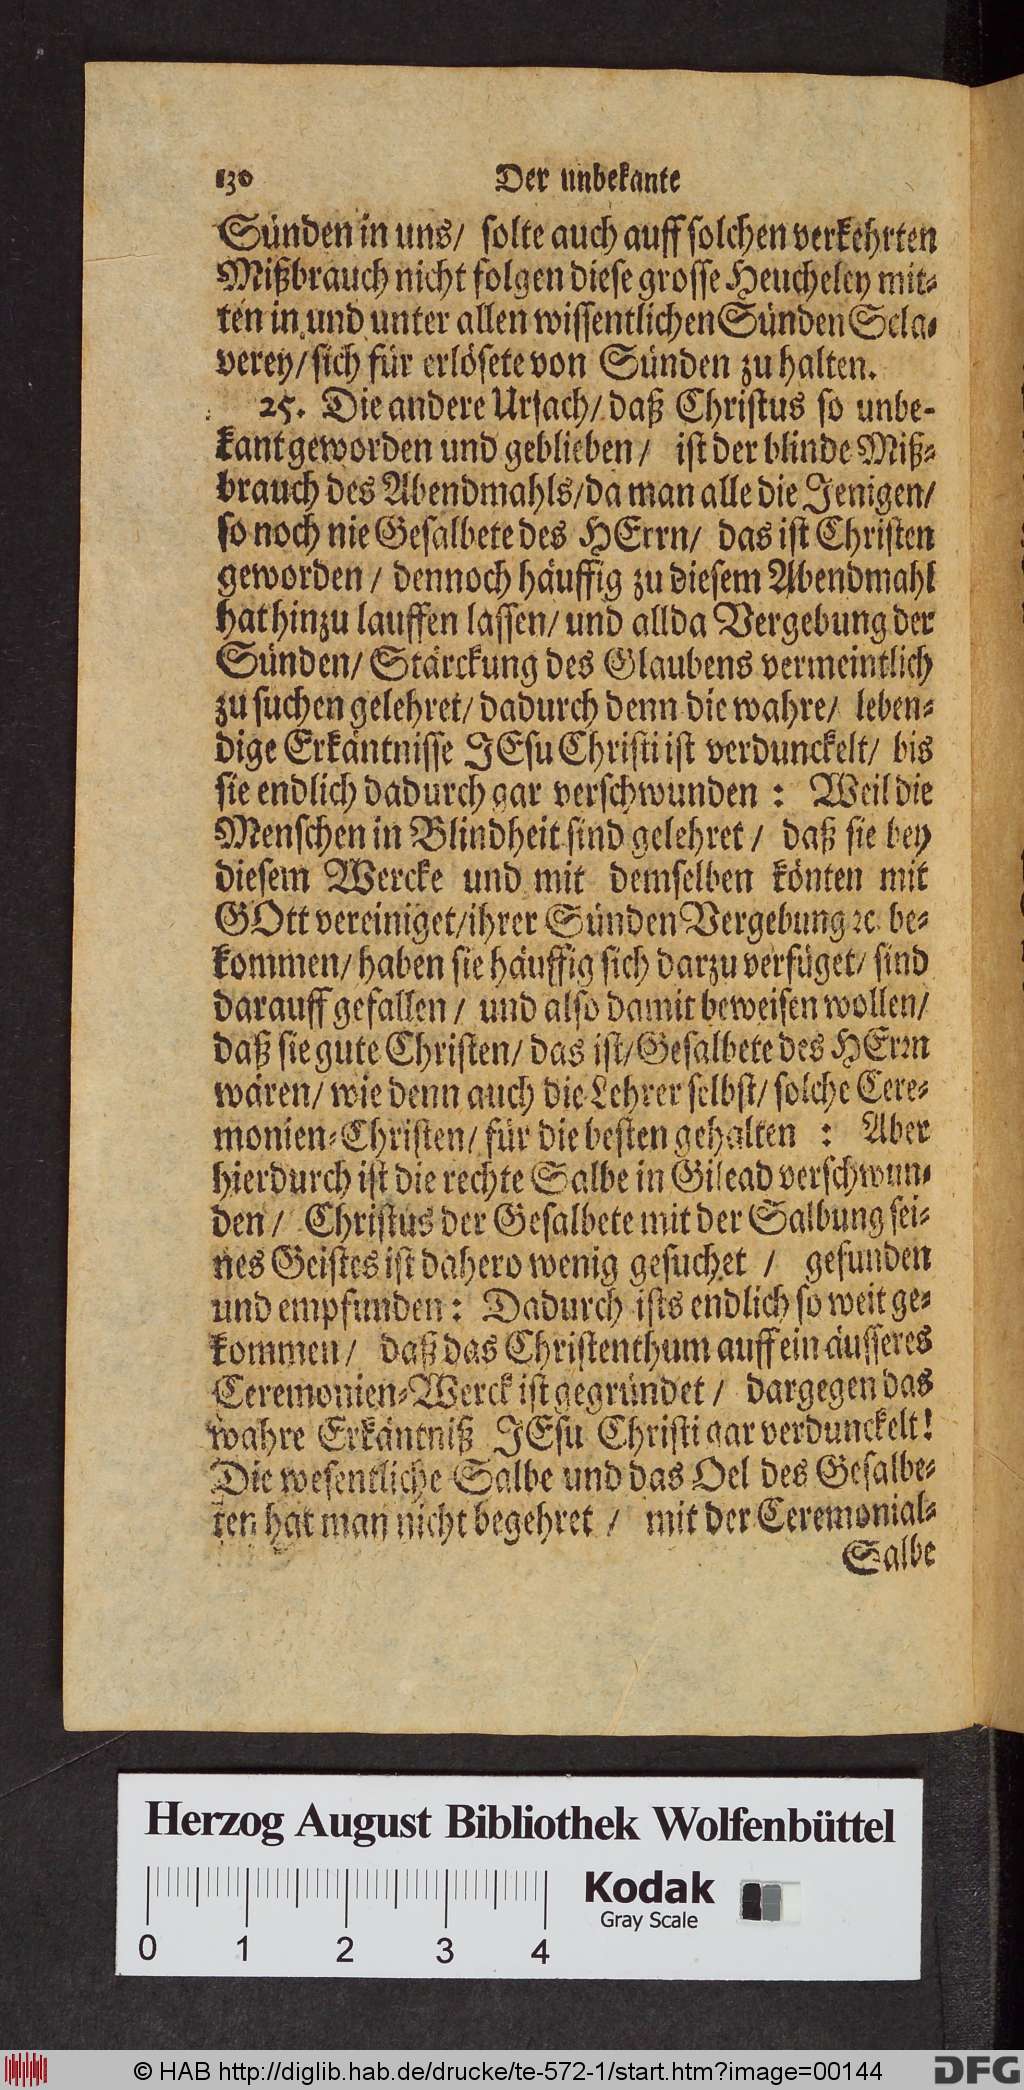 130 Der unbekante
Sünden in uns/ solte auch auff solchen verkehrten
Mißbrauch nicht folgen diese grosse Heucheley mit-
ten in und unter allen wissentlichen Sünden Scla-
verey/ sich für erlösete von Sünden zu halten.
25. Die andere Ursach/ daß Christus so unbe-
kant geworden und geblieben/ ist der blinde Miß-
brauch des Abendmahls/ da man alle die Jenigen/
so noch nie Gesalbete des HErrn/ das ist Christen
geworden/ dennoch häuffig zu diesem Abendmahl
hat hinzu lauffen lassen/ und allda Vergebung der
Sünden/ Stärckung des Glaubens vermeintlich
zu suchen gelehret/ dadurch denn die wahre/ leben-
dige Erkäntnisse JEsu Christi ist verdunckelt/ bis
sie endlich dadurch gar verschwunden: Weil die
Menschen in Blindheit sind gelehret/ daß sie bey
diesem Wercke und mit demselben könten mit
GOtt vereiniget/ ihrer Sünden Vergebung ꝛc. be-
kommen/ haben sie häuffig sich darzu verfüget/ sind
darauff gefallen/ und also damit beweisen wollen/
daß sie gute Christen/ das ist/ Gesalbete des HErrn
wären/ wie denn auch die Lehrer selbst/ solche Cere-
monien-Christen/ für die besten gehalten: Aber
hierdurch ist die rechte Salbe in Gilead verschwun-
den/ Christus der Gesalbete mit der Salbung sei-
nes Geistes ist dahero wenig gesuchet/ gefunden
und empfunden: Dadurch ists endlich so weit ge-
kommen/ daß das Christenthum auff ein äusseres
Ceremonien-Werck ist gegründet/ dargegen das
wahre Erkäntniß JEsu Christi gar verdunckelt!
Die wesentliche Salbe und das Oel des Gesalbe-
ten hat man nicht begehret/ mit der Ceremonial-
Salbe
Herzog August Bibliothek Wolfenbüttel
0 1 2 3 4
Kodak
Gray Scale
© HAB http://diglib.hab.de/drucke/te-572-1/start.htm?image=00144
DFG